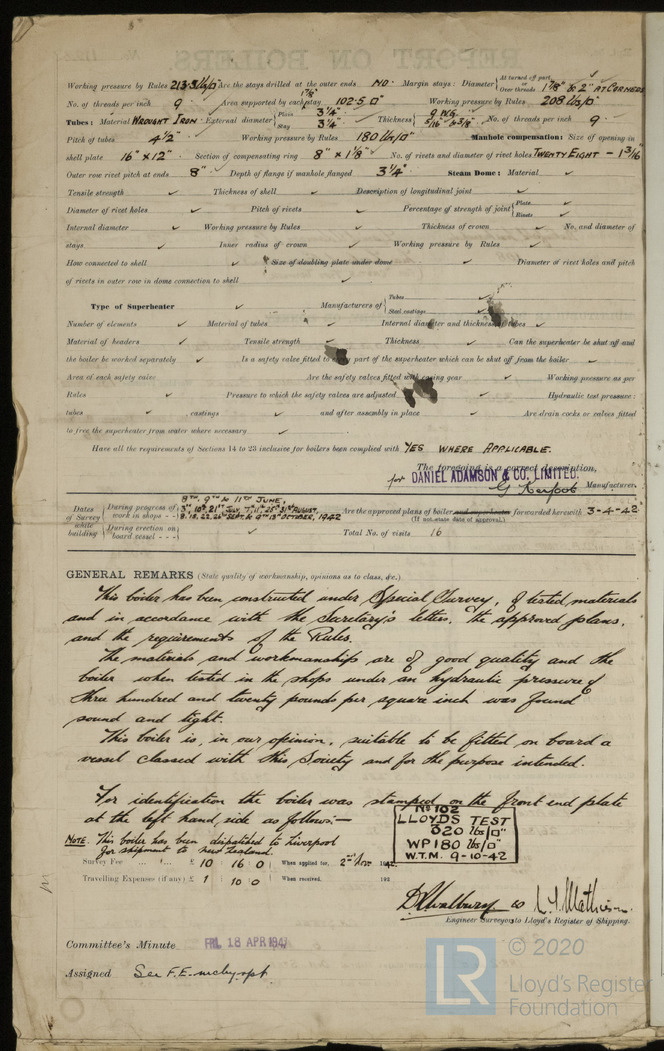 Working pressure by Rules 213.3 lbs/□" Are the stays drilled at the outer ends NO. Margin stays: Diameter { At turned off part, or Over threads 1 7/8" & 2" AT CORNERS
No. of threads per inch 9 Area supported by each stay 102.5 □" Working pressure by Rules 208 lbs/□"
Tubes: Material WROUGHT IRON External diameter { Plain 3 1/4" Stay 3 1/4" Thickness { 9 WG. 5/16" & 3/8" No. of threads per inch 9
Pitch of tubes 4 1/2" Working pressure by Rules 180 lbs/□" Manhole compensation: Size of opening in
shell plate 16" x 12" Section of compensating ring 8" x 1 1/8" No. of rivets and diameter of rivet holes TWENTY EIGHT - 1 3/16"
Outer row rivet pitch at ends 8" Depth of flange if manhole flanged 3 1/4" Steam Dome: Material
Tensile strength Thickness of shell Description of longitudinal joint
Diameter of rivet holes Pitch of rivets Percentage of strength of joint { Plate Rivets
Internal diameter Working pressure by Rules Thickness of crown No. and diameter of
stays Inner radius of crown Working pressure by Rules
How connected to shell Size of doubling plate under dome Diameter of rivet holes and pitch
of rivets in outer row in dome connection to shell
Type of Superheater Manufacturers of { Tubes Steel castings
Number of elements Material of tubes Internal diameter and thickness of tubes
Material of headers Tensile strength Thickness Can the superheater be shut off and
the boiler be worked separately Is a safety valve fitted to every part of the superheater which can be shut off from the boiler
Area of each safety valve Are the safety valves fitted with easing gear Working pressure as per
Rules Pressure to which the safety valves are adjusted Hydraulic test pressure:
tubes castings and after assembly in place Are drain cocks or valves fitted
to free the superheater from water where necessary
Have all the requirements of Sections 14 to 23 inclusive for boilers been complied with YES WHERE APPLICABLE.
The foregoing is a correct description,
for DANIEL ADAMSON & CO. LIMITED.
Manufacturer.
Dates of Survey while building { During progress of work in shops - - 8TH, 9TH & 11TH JUNE,
Are the approved plans of boiler and superheater forwarded herewith 3-4-42
(If not state date of approval.)
During erection on board vessel - - - Total No. of visits 16
GENERAL REMARKS (State quality of workmanship, opinions as to class, &c.)
This boiler has been constructed under Special Survey, of tested materials
and in accordance with the Secretary's letters, the approved plans,
and the requirements of the Rules.
The materials and workmanship are of good quality and the
boiler when tested in the shops under an hydraulic pressure of
three hundred and twenty pounds per square inch was found
sound and tight.
This boiler is, in our opinion, suitable to be fitted on board a
vessel classed with this Society and for the purpose intended.
For identification the boiler was stamped on the front end plate
at the left hand side as follows:-
No 102
LLOYDS TEST
320 lbs/□"
WP 180 lbs/□"
W.T.M. 9-10-42
NOTE. This boiler has been dispatched to Liverpool
for shipment to New Zealand.
Survey Fee ... ... £ 10 16 0 When applied for, 2nd Nov 1942.
Travelling Expenses (if any) £ 1 10 0 When received, 192
Engineer Surveyors to Lloyd's Register of Shipping.
Committee's Minute FRI. 18 APR 1947
Assigned See F.E. mchy. rpt.
© 2020
Lloyd's Register
Foundation
LR